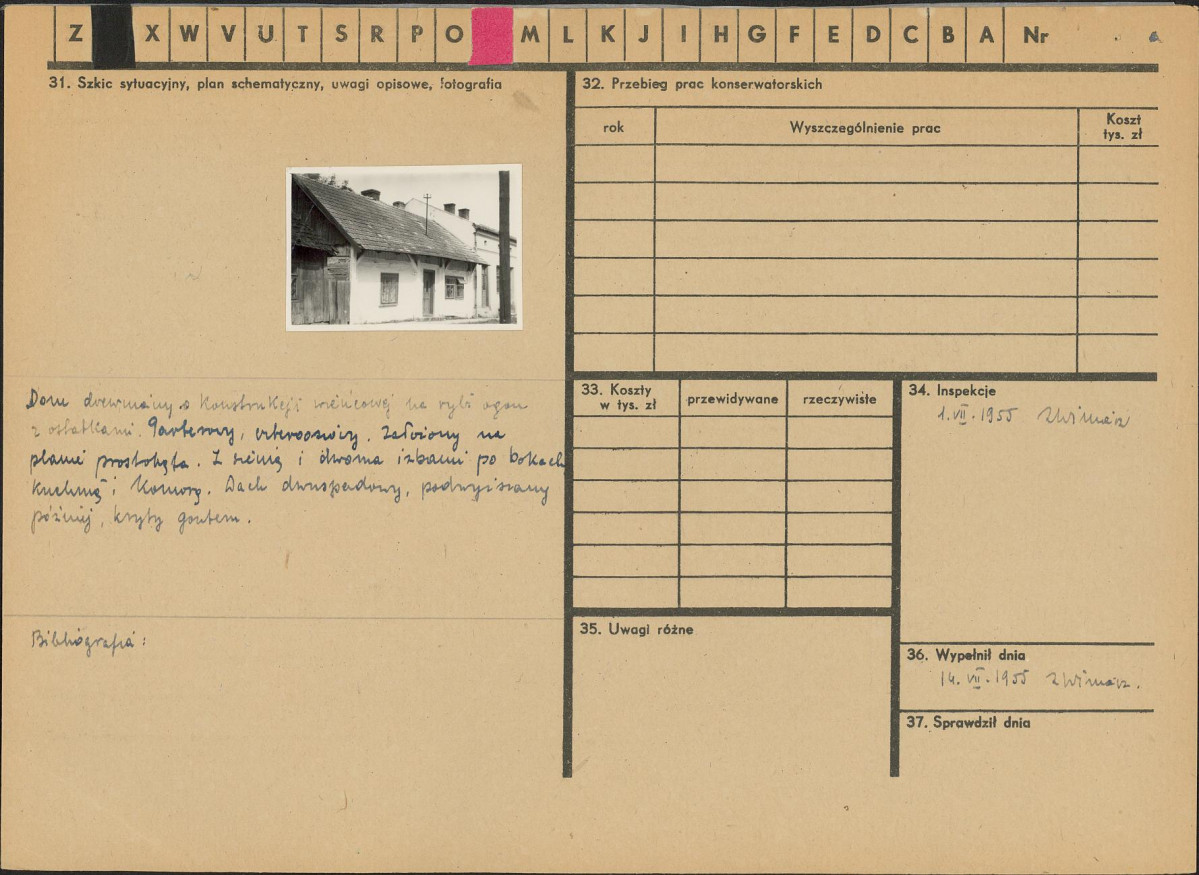 Z X W V U T S R P O M L K J I H G F E D C B A Nr a
31. Szkic sytuacyjny, plan schematyczny, uwagi opisowe, fotografia
Dom drewniany o konstrukcji wieńcowej na rybi ogon
z ostatkami. Parterowy, czteroosiowy. Założony na
planie prostokąta. Z sienią i dwoma izbami po bokach
kuchnią i komorą. Dach dwuspadowy, podwyższany
później, kryty gontem.
Bibliografia:
32. Przebieg prac konserwatorskich
rok Wyszczególnienie prac Koszt
tys. zł
33. Koszty
w tys. zł przewidywane rzeczywiste
34. Inspekcje
1. VII. 1955
35. Uwagi różne
36. Wypełnił dnia
14. VII. 1955
37. Sprawdził dnia